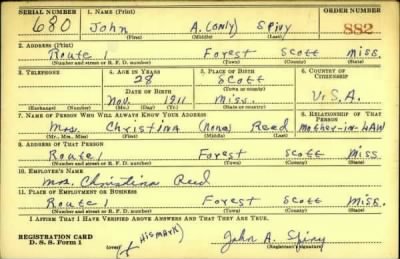 SERIAL NUMBER 1. NAME (Print) ORDER NUMBER
680 John A. (only) Spivy 882
(First) (Middle) (Last)
2. ADDRESS (Print)
Route 1 Forest Scott Miss.
(Number and street or R. F. D. number) (Town) (County) (State)
3. TELEPHONE 4. AGE IN YEARS 5. PLACE OF BIRTH 6. COUNTRY OF CITIZENSHIP
28 Scott
DATE OF BIRTH (Town or county)
Nov. 1911 Miss. U.S.A.
(Exchange) (Number) (Mo.) (Day) (Yr.) (State or country)
7. NAME OF PERSON WHO WILL ALWAYS KNOW YOUR ADDRESS 8. RELATIONSHIP OF THAT PERSON
Mrs. Christina (None) Reed Mother-in-LAW
(Mr., Mrs., Miss) (First) (Middle) (Last)
9. ADDRESS OF THAT PERSON
Route 1 Forest Scott Miss.
(Number and street or R. F. D. number) (Town) (County) (State)
10. EMPLOYER'S NAME
Mrs. Christina Reed
11. PLACE OF EMPLOYMENT OR BUSINESS
Route 1 Forest Scott Miss.
(Number and street or R. F. D. number) (Town) (County) (State)
I AFFIRM THAT I HAVE VERIFIED ABOVE ANSWERS AND THAT THEY ARE TRUE.
REGISTRATION CARD
D. S. S. Form 1 (over) (His mark) John A. Spivy
(Registrant's signature)